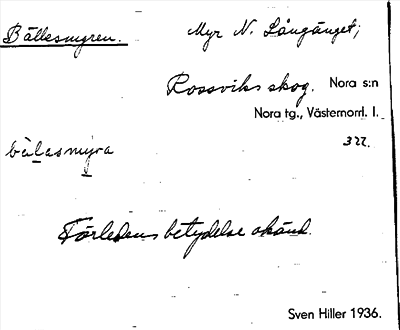 Bällesmyren. Myr N. Långänget;
Rossviks skog. Nora s:n
Nora tg., Västernorrl. l.
bälasmyra 322.
Förledens betydelse okänd.
Sven Hiller 1936.